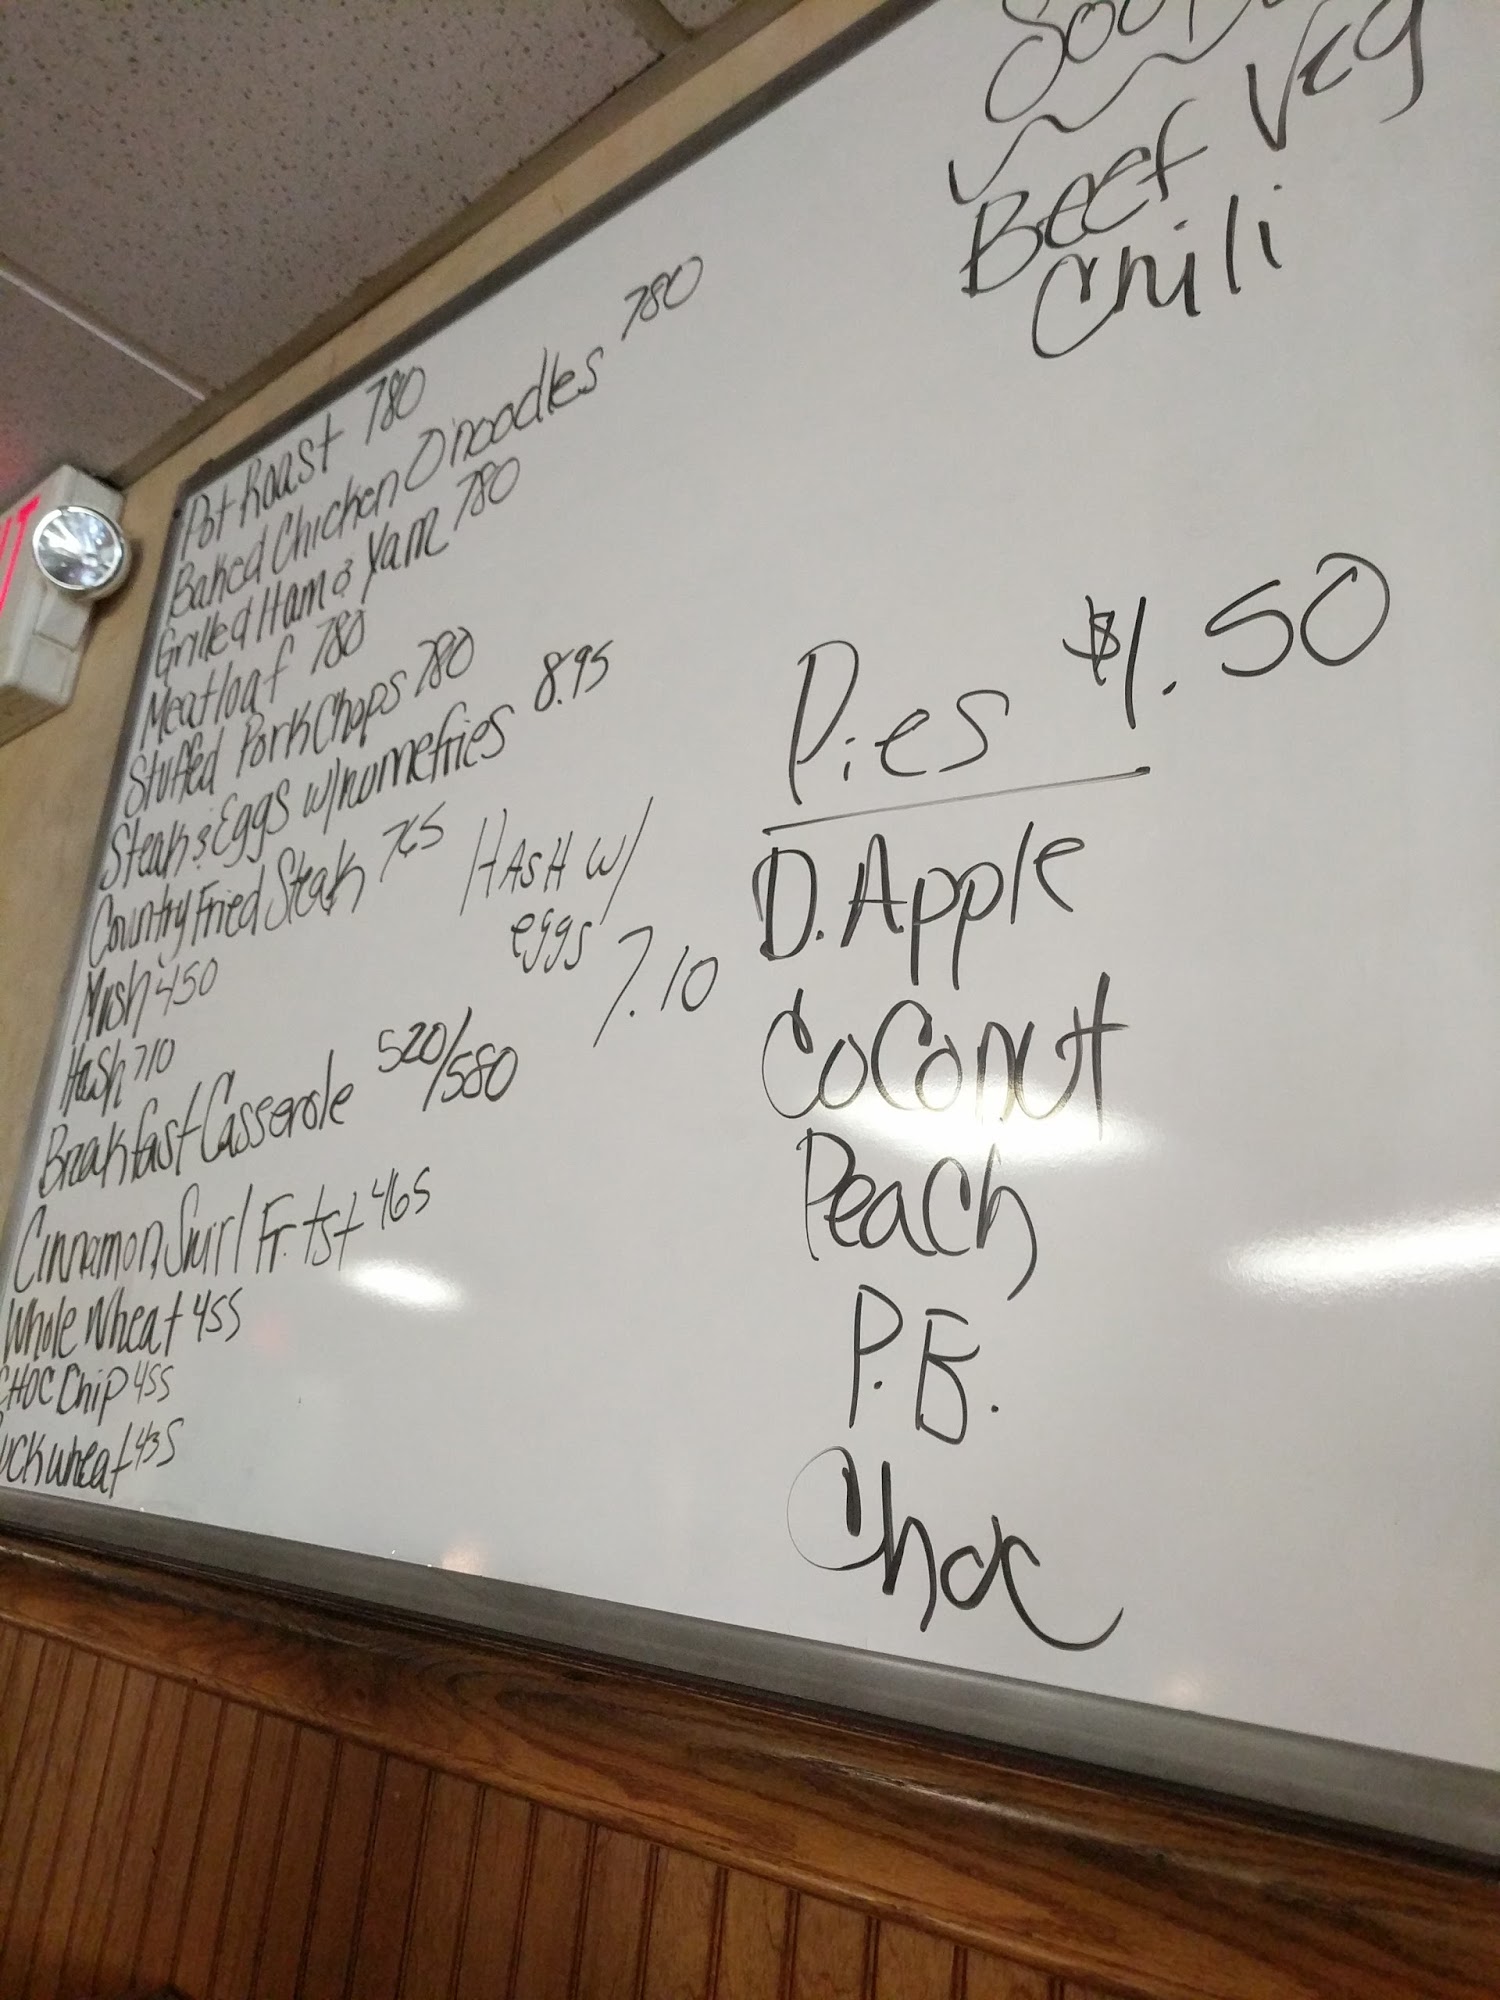 Pot Roast 780
Baked Chicken O'noodles 780
Grilled Ham & Yam 780
Meatloaf 780
Stuffed Pork Chops 780
Steak & Eggs w/homefries 8.95
Country Fried Steak 765
Mush 450
Hash 710
Hash w/
eggs
7.10
Breakfast Casserole 520/580
Cinnamon Swirl Fr. tst 465
Whole Wheat 455
CHOC Chip 455
Buckwheat 435
Soups
Beef Veg
Chili
Pies $1.50
D. Apple
Coconut
Peach
P.B.
Choc